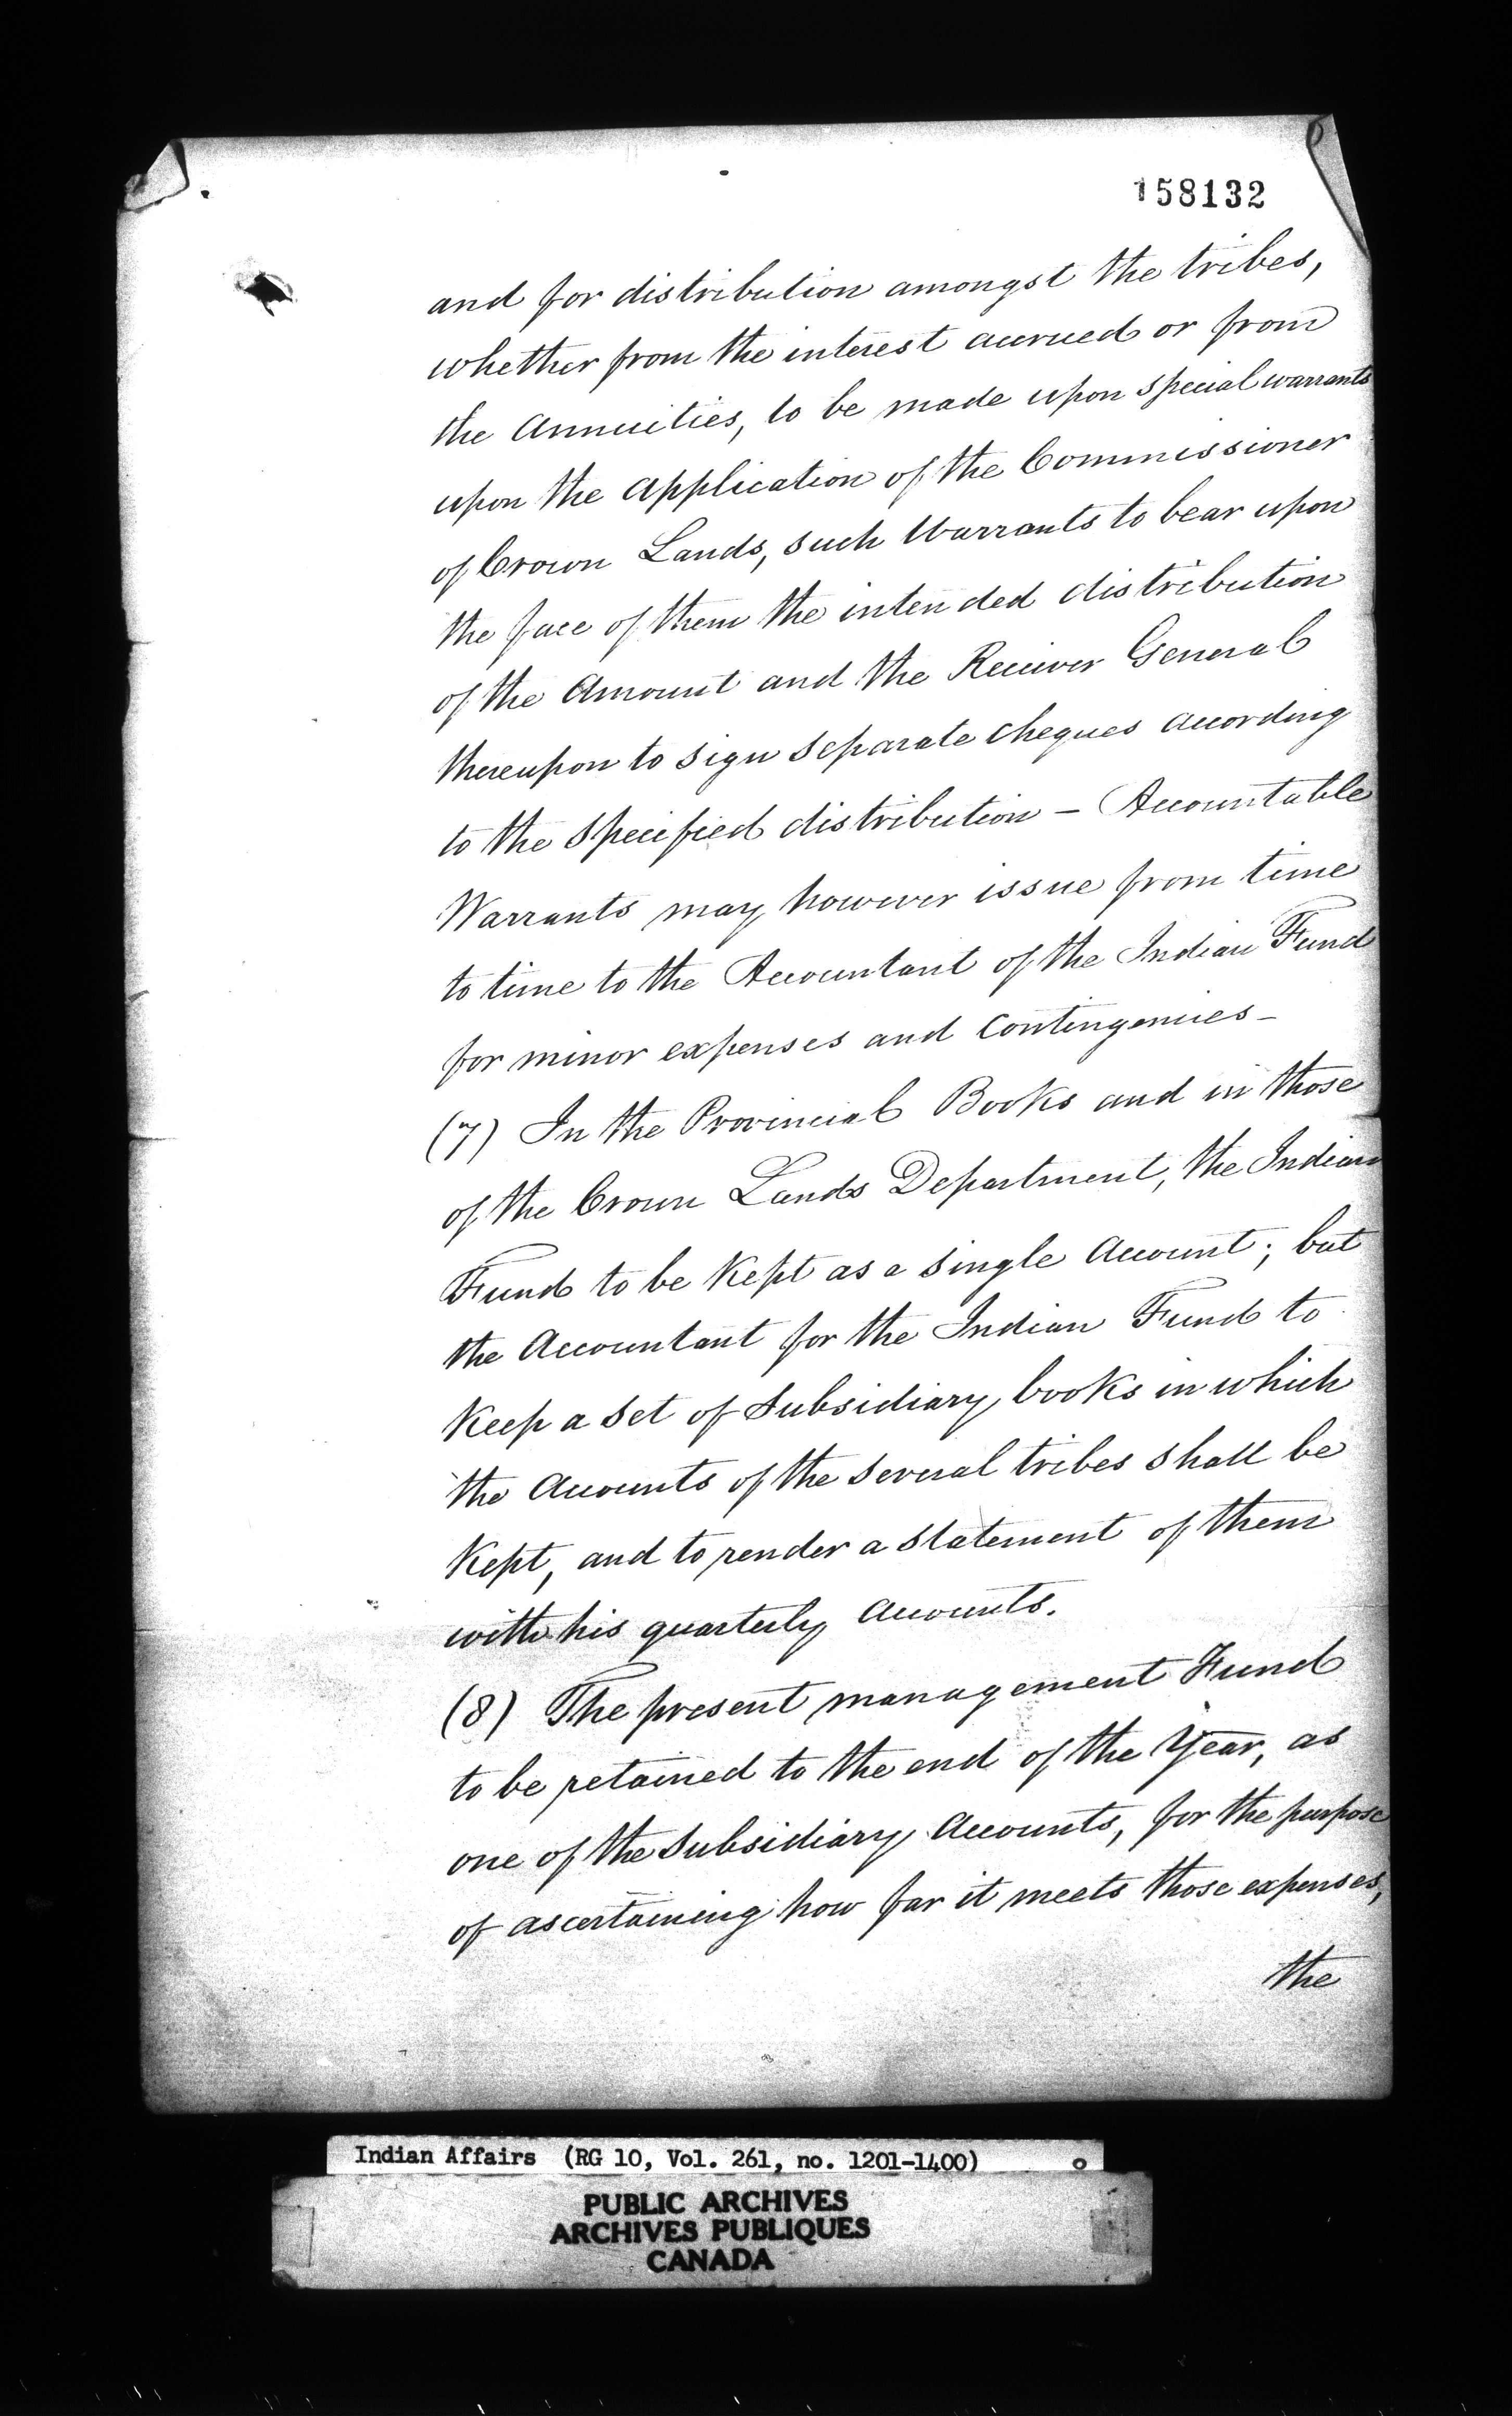 158132
and for distribution amongst the tribes,
whether from the interest accrued or from
the Annuities, to be made upon special warrants
upon the application of the Commissioner
of Crown Lands, such Warrants to bear upon
the face of them the intended distribution
of the Amount and the Receiver General
thereupon to sign separate cheques according
to the specified distribution - Accountable
Warrants may however issue from time
to time to the Accountant of the Indian Fund
for minor expenses and Contingencies -
(7) In the Provincial Books and in those
of the Crown Lands Department, the Indian
Fund to be Kept as a single Account; but
the Accountant for the Indian Fund to
Keep a set of Subsidiary books in which
the Accounts of the several tribes shall be
Kept, and to render a statement of them
with his quarterly Accounts.
(8) The present management Fund
to be retained to the end of the Year, as
one of the Subsidiary Accounts, for the purpose
of ascertaining how far it meets those expenses,
the
Indian Affairs (RG 10, Vol. 261, no. 1201-1400)
PUBLIC ARCHIVES
ARCHIVES PUBLIQUES
CANADA